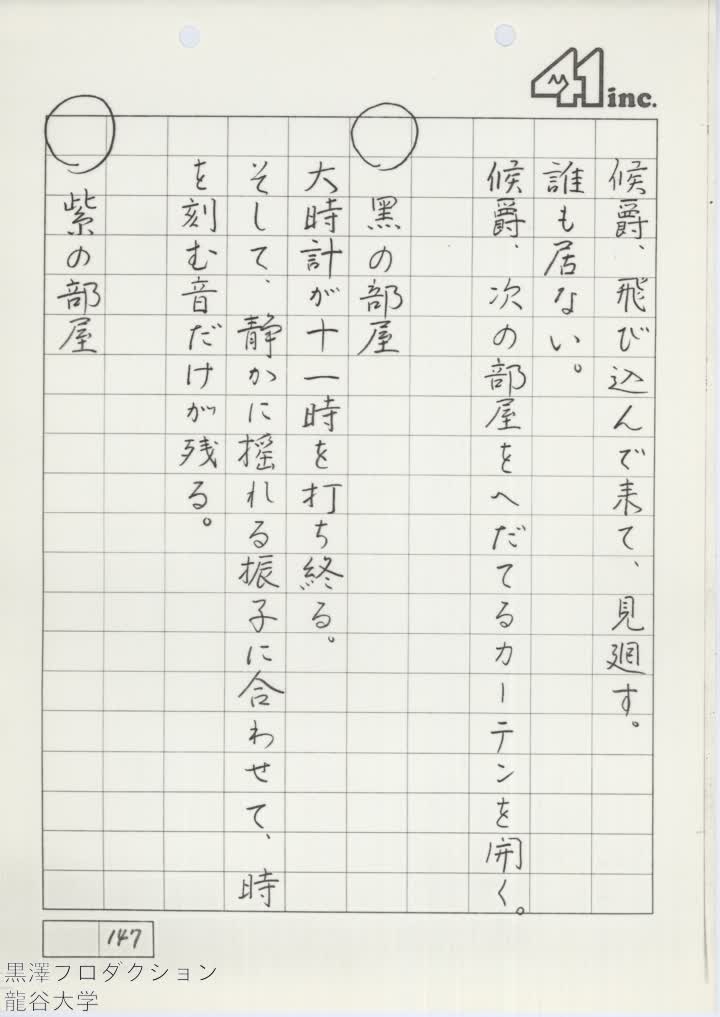 41 inc.
候爵、飛び込んで来て、見廻す。
誰も居ない。
候爵、次の部屋をへだてるカーテンを開く。
○ 黒の部屋
大時計が十一時を打ち終る。
そして、静かに揺れる振子に合わせて、時
を刻む音だけが残る。
○ 紫の部屋
147
黒澤フロダクション
龍谷大学